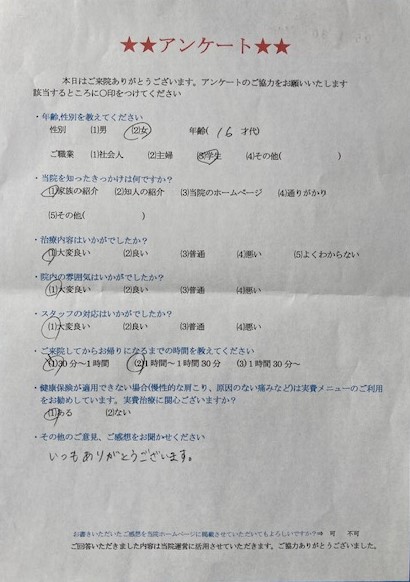 ★★アンケート★★
本日はご来院ありがとうございます。アンケートのご協力をお願いいたします
該当するところに〇印をつけてください
・年齢,性別を教えてください
性別 (1)男 (2)女 年齢( 16 才代)
ご職業 (1)社会人 (2)主婦 (3)学生 (4)その他( )
・当院を知ったきっかけは何ですか?
(1)家族の紹介 (2)知人の紹介 (3)当院のホームページ (4)通りがかり
(5)その他( )
・治療内容はいかがでしたか?
(1)大変良い (2)良い (3)普通 (4)悪い (5)よくわからない
・院内の雰囲気はいかがでしたか?
(1)大変良い (2)良い (3)普通 (4)悪い
・スタッフの対応はいかがでしたか?
(1)大変良い (2)良い (3)普通 (4)悪い
・ご来院してからお帰りになるまでの時間を教えてください
(1)30分~1時間 (2)1時間~1時間30分 (3)1時間30分~
・健康保険が適用できない場合(慢性的な肩こり、原因のない痛みなど)は実費メニューのご利用
をお勧めしています。実費治療に関心ございますか?
(1)ある (2)ない
・その他のご意見、ご感想をお聞かせください
いつもありがとうございます。
お書きいただいたご感想を当院ホームページに掲載させていただいてもよろしいですか?⇒ 可 不可
ご回答いただきました内容は当院運営に活用させていただきます。ご協力ありがとうございました。